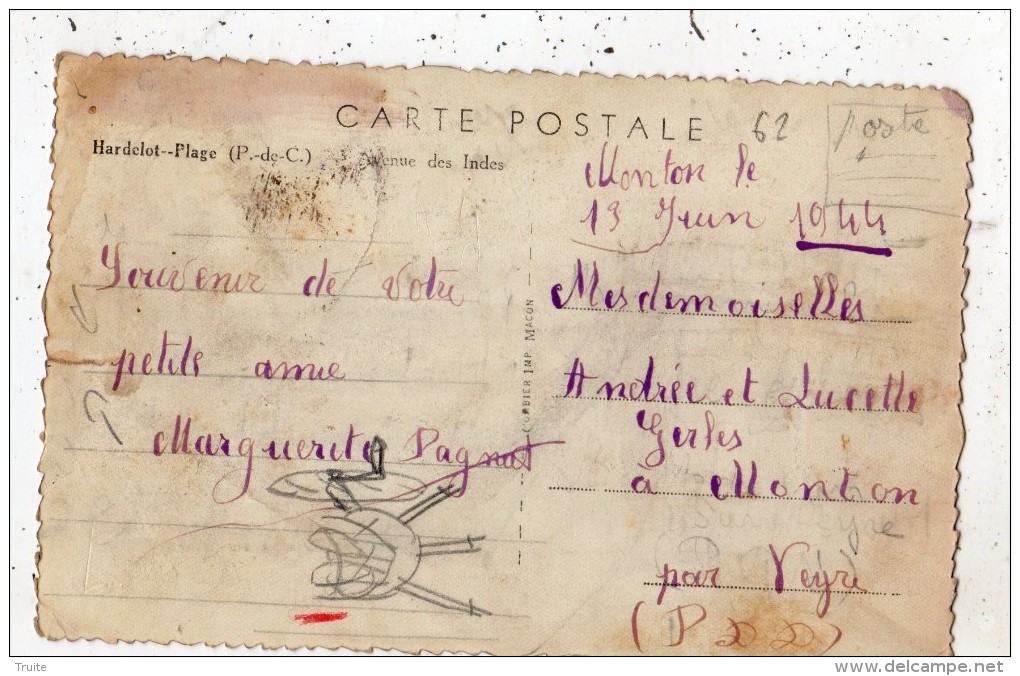 CARTE POSTALE
62
Poste
Hardelot--Plage (P.-de-C.)
Avenue des Indes
Monton le
13 Juin 1944
Souvenir de votre
petite amie
Marguerite Pagnat
IMP. MACON
Mesdemoiselles
Andrée et Lucette
Gerles
à Monton
par Veyre
(P D D)
Truite
www.delcampe.net